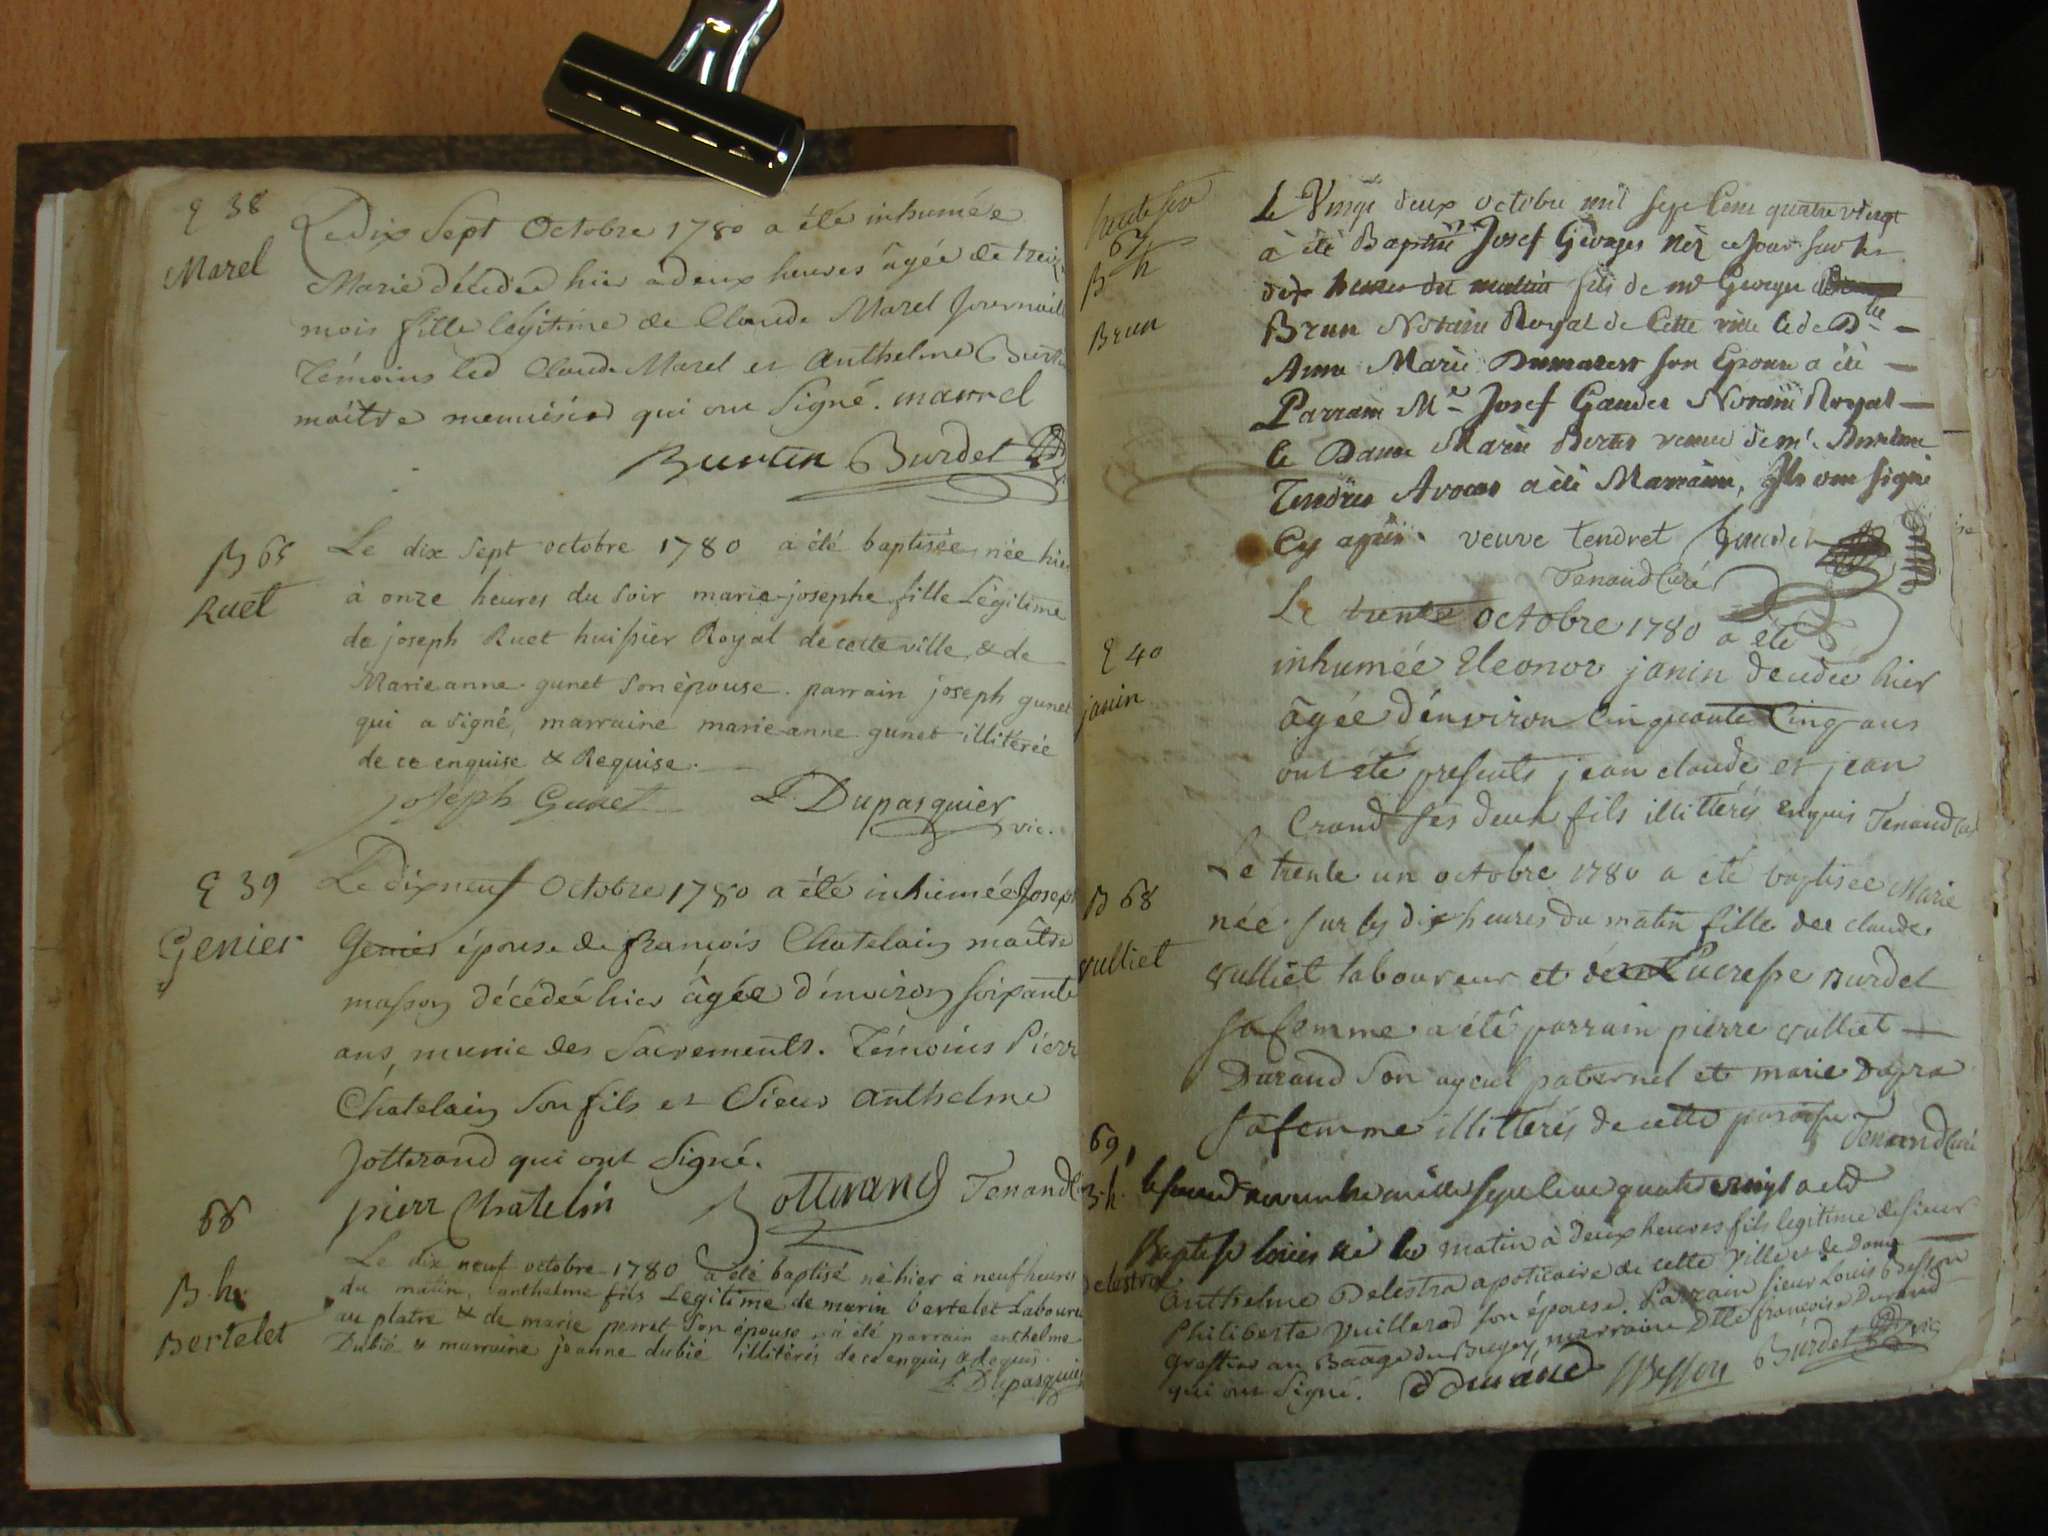 E 38
Marel
Le dix Sept Octobre 1780 a été inhumée
Marie décédée hier a deux heures âgée de treize
mois fille légitime de Claude Marel Journali
Témoins led Claude Marel et Anthelme Burtin
maître menuisier qui ont Signé. marrel
Burtin Burdet
B 65
Ruet
Le dix sept octobre 1780 a été baptisée née hier
à onze heures du soir marie-josephe fille Légitime
de joseph Ruet huissier Royal de cette ville & de
Marieanne gunet son épouse. parrain joseph gunet
qui a signé, marraine marie-anne gunet illitérée
de ce enquise & Requise.
joseph Gunet L. Dupasquier
vic.
E 39
Genier
Le dixneuf Octobre 1780 a été inhumée Joseph
Genier épouse de françois Chatelain maître
masson décédée hier âgée d'environ soixante
ans, munie des Sacrements. Témoins Pierr
Chatelain son fils et Sieur Anthelme
Jotterand qui ont Signé.
pierr Chatelin Jotterand Tenand
66
B. h.
Bertelet
Le dix neuf octobre 1780 a été baptisé né hier à neuf heures
du matin, anthelme fils Légitime de marin bertelet Laboure
au platre & de marie perret son épouse, a été parrain anthelme
Dubié & marraine jeanne dubié illitérés de ce enquis & Requis.
L. Dupasquier
67
B h
Brun
Le Vingt deux octobre mil sept Cent quatre vingt
à été Baptisé Josef Georges Néz ce Jour sur les
dix heures du matin fils de mr George
Brun Notaire Royal de Cette ville & de Dlle
Anne Marie son Epouse a été
Parrain Mr Josef Gaudet Notaire Royal
& Dame Marie veuve de mr Anthelme
Tendret Avocat a été Marraine, Ils ont signé
Cy après. veuve tendret Gaudet
Tenand Curé
E 40
janin
Le trente octobre 1780 a été
inhumée Eleonor janin décédée hier
âgée d'environ Cinquante Cinq ans
ont été presents jean claude et jean
Crand ses deux fils illittérés enquis Tenand Curé
B 68
vulliet
Le trente un octobre 1780 a été baptisée Marie
née sur les dix heures du matin fille de claude
vulliet laboureur et de Lucresse Burdet
sa femme a été parrain pierre vulliet
Durand Son ayeul paternel et marie Dupra
sa femme illittérés de cette paroisse Tenand Curé
69
B. h.
Delestra
le second novembre mille sept cent quatre vingt a été
Baptisé louis né le matin à deux heures fils legitime de sieur
Anthelme Delestra apoticaire de cette Ville et de Dame
Philiberte Vuillerod son épouse. Parrain sieur Louis Besson
Greffier au Baage du Bugey, marraine Dlle françoise Durand
qui ont Signé. Durand Besson Burdet vic